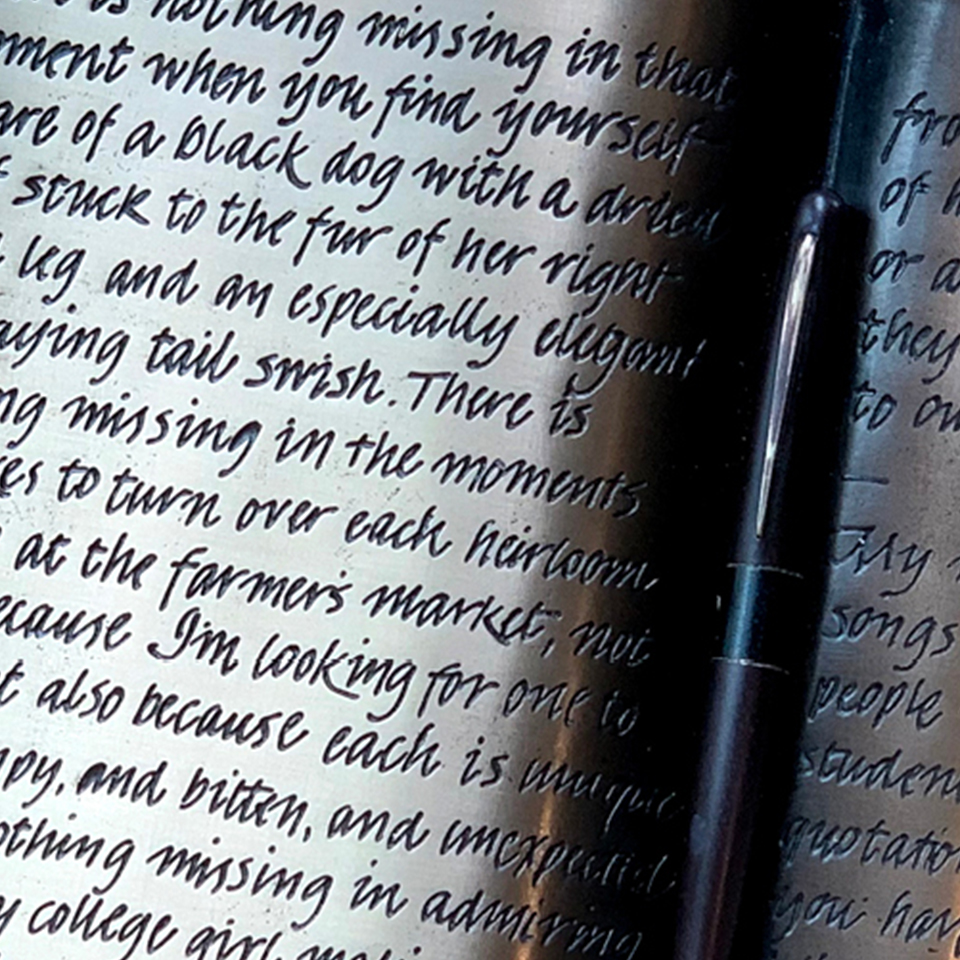 is nothing missing in that
when you find yourself
of a black dog with a dried
stuck to the fur of her right
leg and an especially elegant
tail swish. There is
missing in the moments
to turn over each heirloom,
at the farmer's market, not
I'm looking for one to
also because each is unique
and bitten, and unexpected
missing in admiring
college girl
of
or
they
to
—
My
songs
people
you